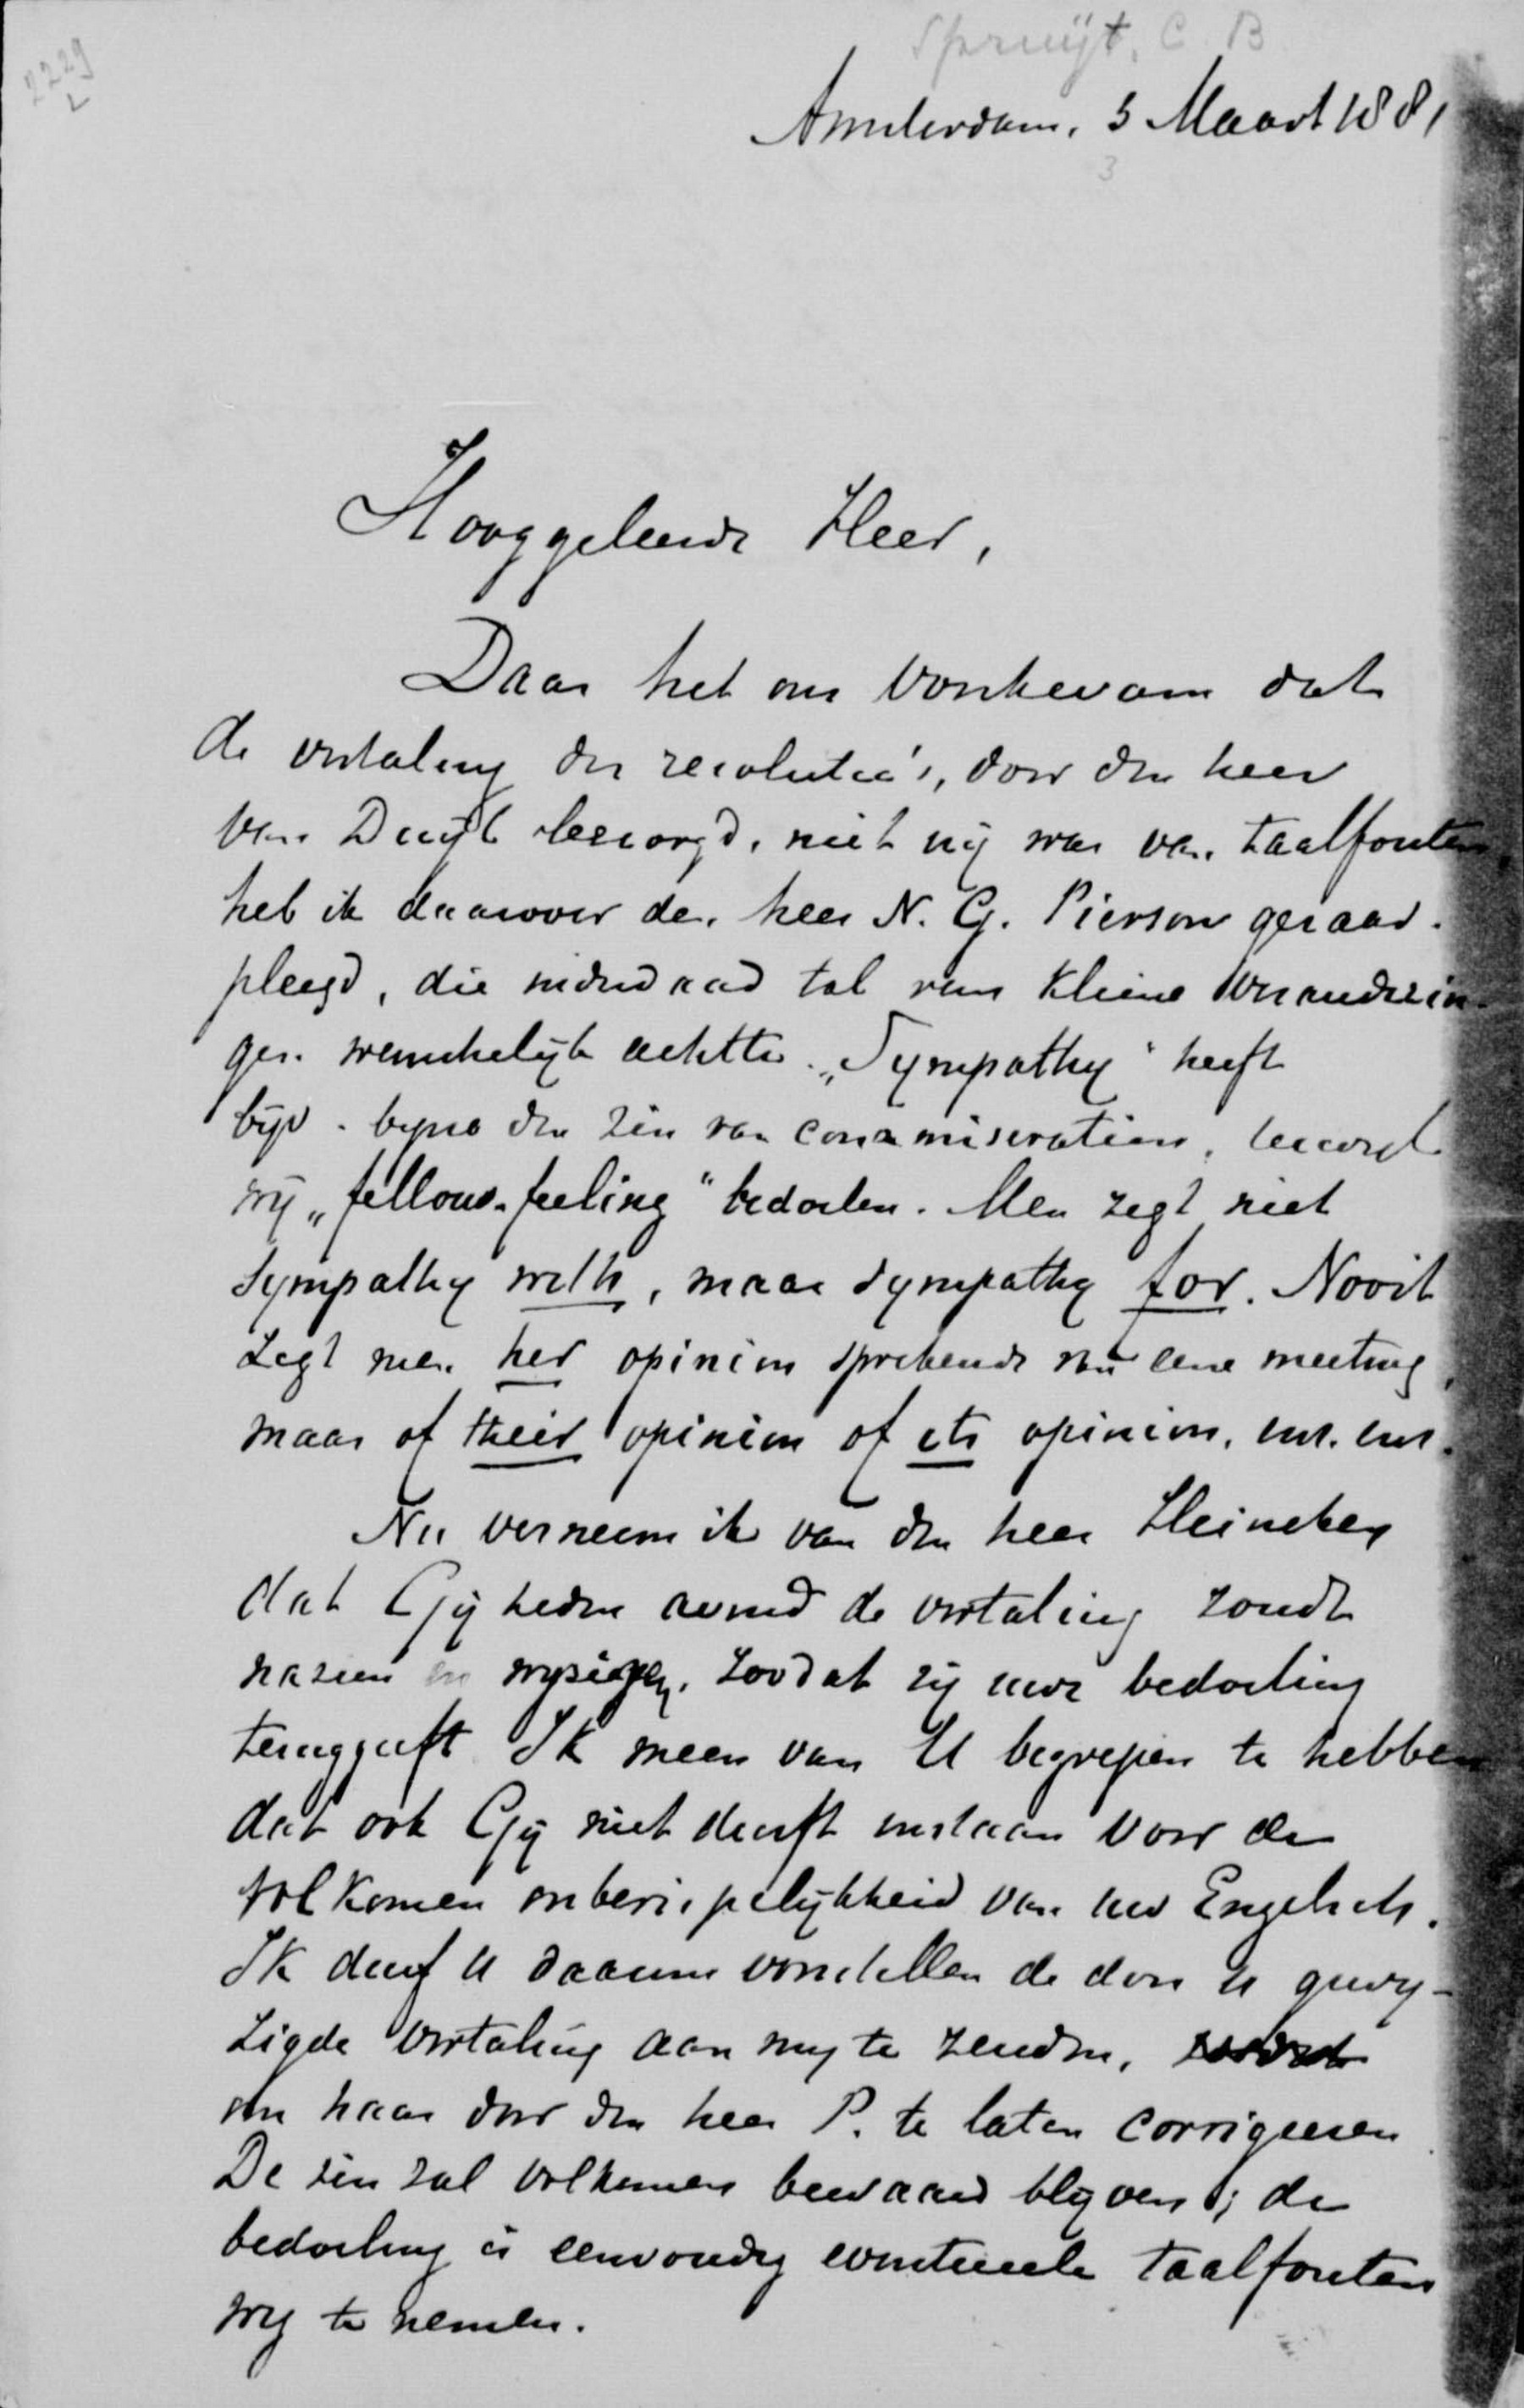 Spruijt, C. B
2229
L
Amsterdam, 3 Maart 1881
3
Hooggeleerde Heer,
Daar het ons voorkwam dat
de vertaling der resolutie's, door den heer
van Duyl bezorgd, niet vrij was van taalfouten,
heb ik daarover den heer N. G. Pierson geraad-
pleegd, die inderdaad tal van kleine veranderin-
gen wenschelijk achtte. „Sympathy" heeft
bijv. bijna den zin van commiseration, terwijl
wij „fellow-feeling" bedoelen. Men zegt niet
sympathy with, maar sympathy for. Nooit
zegt men her opinion sprekende van eene meeting,
maar of their opinion of its opinion, enz. enz.
Nu verneem ik van den heer Heineken
dat Gij heden avond de vertaling zoudt
nazien en wijzigen, zoodat zij uwe bedoeling
teruggeeft. Ik meen van U begrepen te hebben
dat ook Gij niet durft instaan voor de
volkomen onberispelijkheid van uw Engelsch.
Ik durf U daarom voorstellen de door U gewij-
zigde vertaling aan mij te zenden,
om haar door den heer P. te laten corrigeeren.
De zin zal volkomen bewaard blijven; de
bedoeling is eenvoudig eventueele taalfouten
weg te nemen.